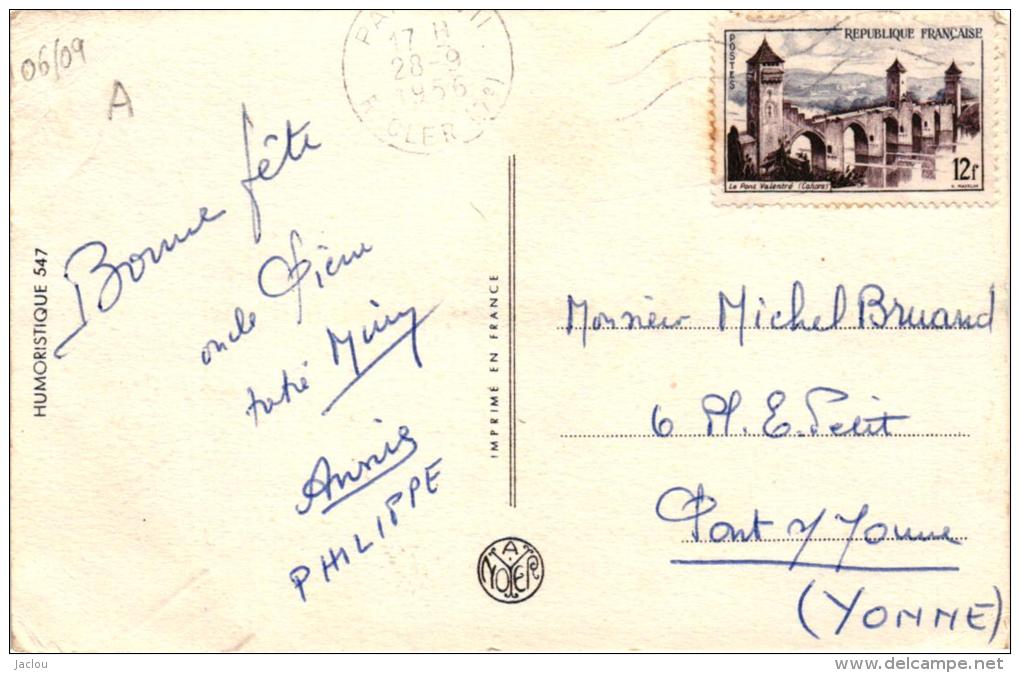 06/09
A
17 H
28-9
1956
REPUBLIQUE FRANÇAISE
POSTES
12f
Le Pont Valentré (Cahors)
HUMORISTIQUE 547
Bonne fête
oncle Pierre
tatie Mimy
Annie
PHILIPPE
IMPRIMÉ EN FRANCE
A
NOYER
Monsieur Michel Bruand
6 Pl. E. Petit
Pont s/ Yonne
(YONNE)
Jaclou
www.delcampe.net